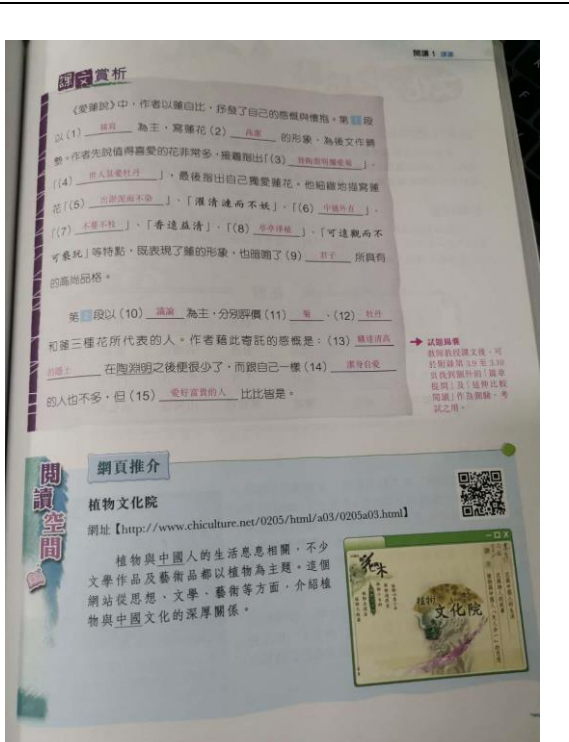 閱讀 1
課文賞析
《愛蓮說》中，作者以蓮自比，抒發了自己的感慨與懷抱。第1段
以(1) 描寫 為主，寫蓮花(2) 高潔 的形象，為後文作鋪
墊。作者先說值得喜愛的花非常多，繼而指出「(3)
「(4) 世人甚愛牡丹 」，最後指出自己獨愛蓮花，他細緻地描寫蓮
花「(5) 出淤泥而不染 」、「濯清漣而不妖」、「(6) 中通外直 」、
「(7) 不蔓不枝 」、「香遠益清」、「(8) 亭亭淨植 」、「可遠觀而不
可褻玩」等特點，既表現了蓮的形象，也暗喻了(9) 君子 所具有
的高尚品格。
第2段以(10) 議論 為主，分別評價(11) 菊 、(12) 牡丹
和蓮三種花所代表的人。作者藉此寄託的感慨是：(13) 曠達清高
的隱士 在陶淵明之後便很少了，而跟自己一樣(14) 潔身自愛
的人也不多，但(15) 愛好富貴的人 比比皆是。
試題錦囊
教師教授課文後，可
於附錄第 3.9 至 3.10
頁找到額外的「篇章
提問」及「延伸比較
閱讀」作為測驗、考
試之用。
閱讀空間
網頁推介
植物文化院
網址【http://www.chiculture.net/0205/html/a03/0205a03.html】
植物與中國人的生活息息相關，不少
文學作品及藝術品都以植物為主題。這個
網站從思想、文學、藝術等方面，介紹植
物與中國文化的深厚關係。
植物
文化院